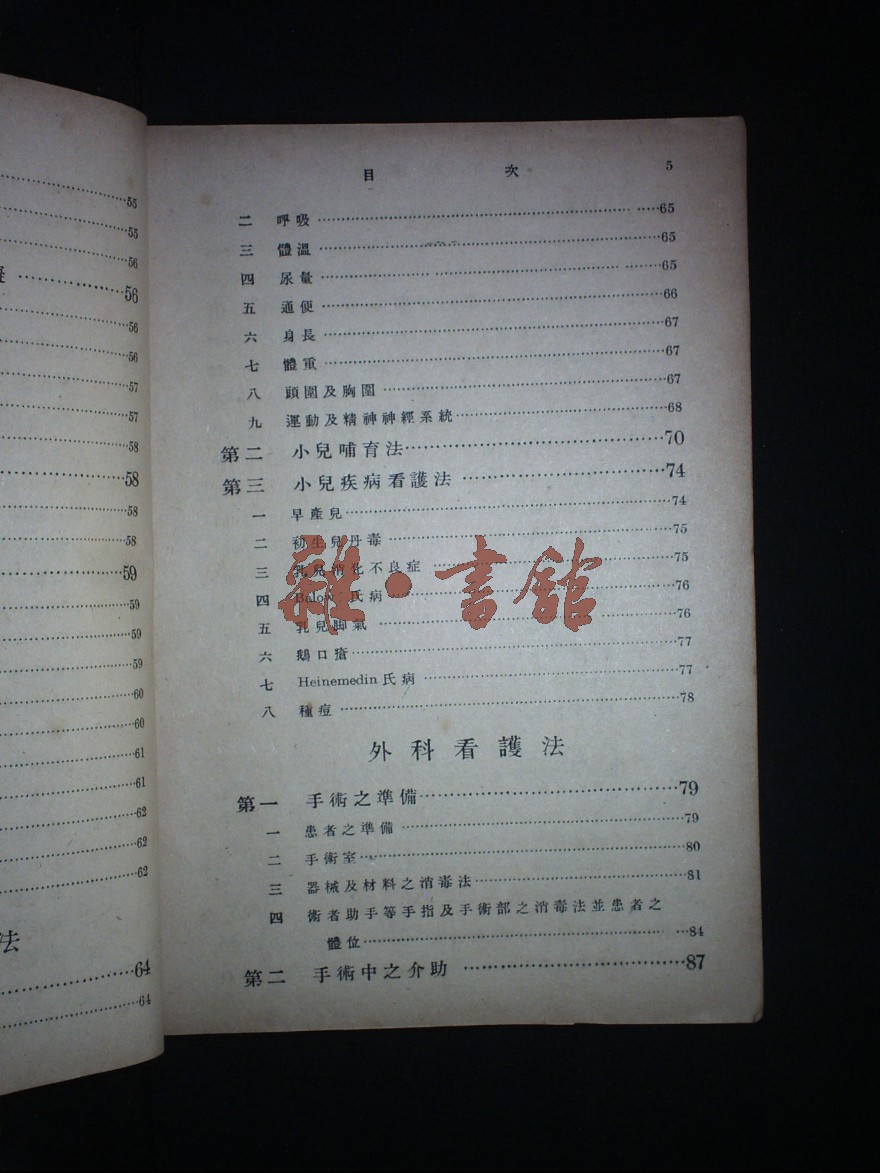 55
55
56
56
56
56
57
57
58
58
58
58
59
59
59
59
60
60
61
61
62
62
62
法
64
64
目 次 5
二 呼吸 65
三 體溫 65
四 尿量 65
五 通便 66
六 身長 67
七 體重 67
八 頭圍及胸圍 67
九 運動及精神神經系統 68
第二 小兒哺育法 70
第三 小兒疾病看護法 74
一 早產兒 74
二 初生兒丹毒 75
三 乳兒消化不良症 75
四 Balow 氏病 76
五 乳兒脚氣 76
六 鵝口瘡 77
七 Heinemedin 氏病 77
八 種痘 78
外科看護法
第一 手術之準備 79
一 患者之準備 79
二 手術室 80
三 器械及材料之消毒法 81
四 術者助手等手指及手術部之消毒法並患者之
體位 84
第二 手術中之介助 87
雜·書館